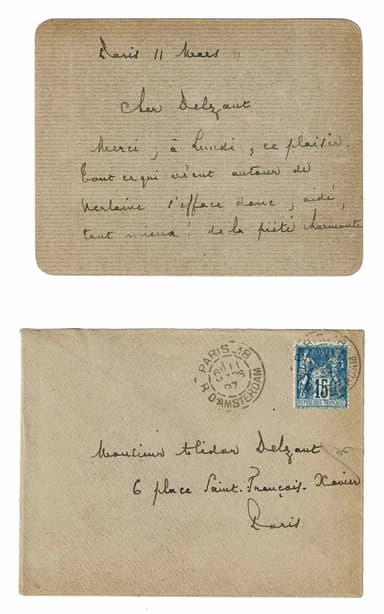 Paris 11 Mars
Cher Delzant
Merci ; à Lundi, ce plaisir.
Tout ce qui vécut autour de
Verlaine s'efface donc, aidé,
tant mieux! de la piété charmante
PARIS-18
11
MARS
97
R. D'AMSTERDAM
POSTES
15
REPUBLIQUE FRANÇAISE
Monsieur Alidor Delzant
6 place Saint-François-Xavier
Paris